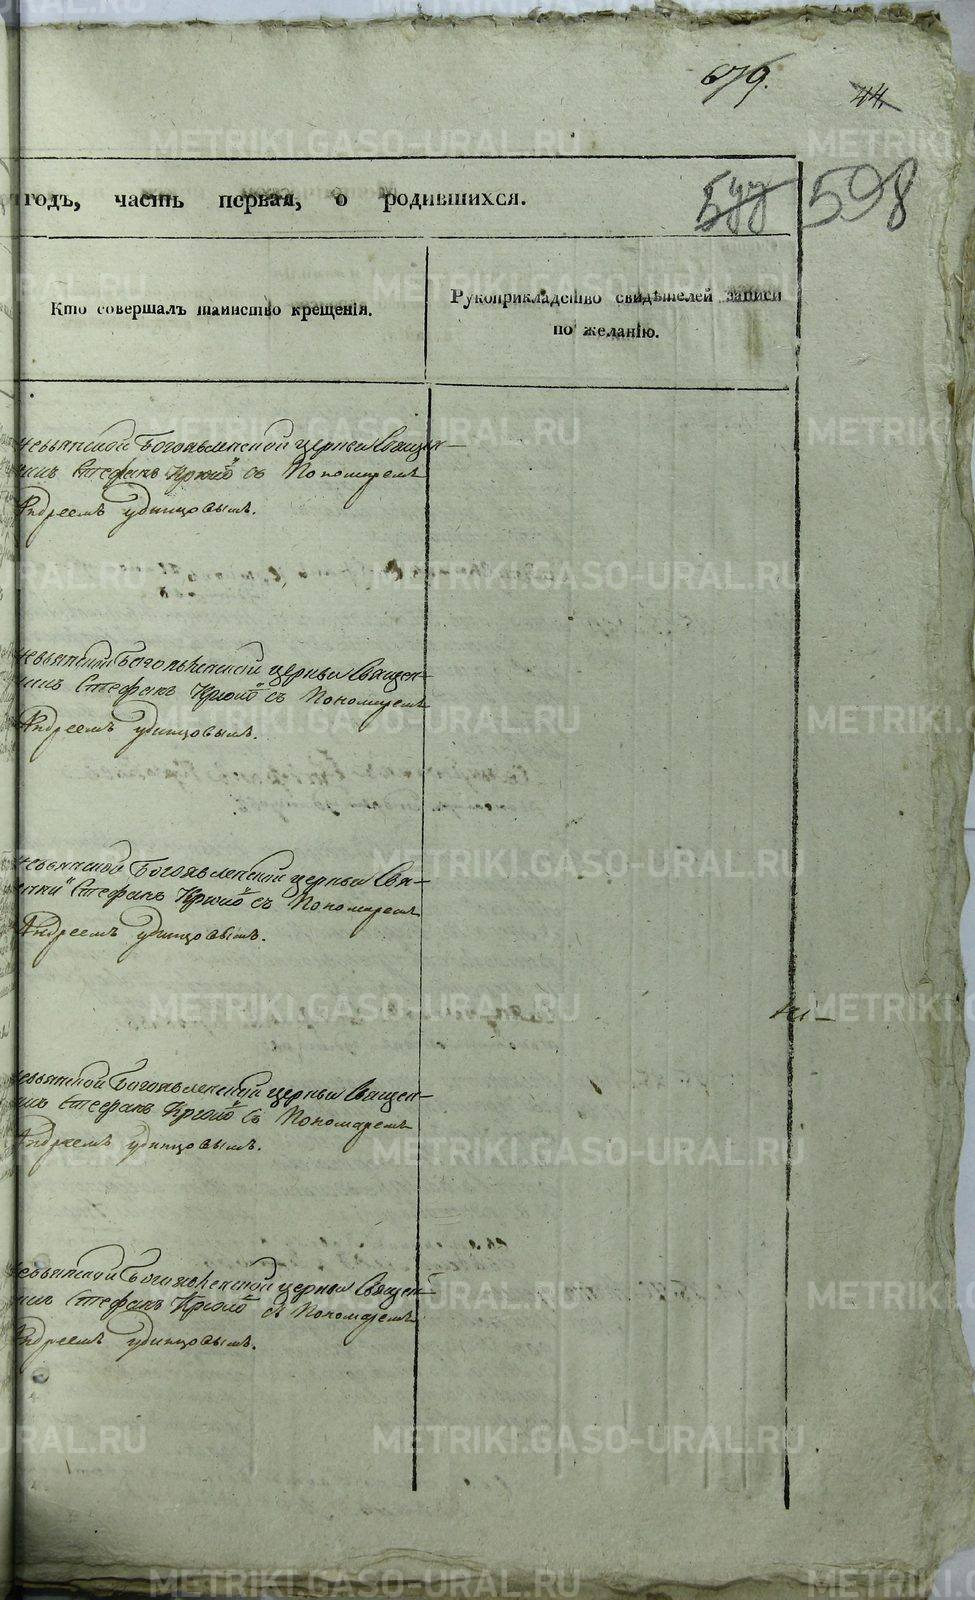 679.
44.
598
годъ, часть первая, о родившихся.
Кто совершалъ таинство крещенія.
Рукоприкладство свидѣтелей записи
по желанію.
Невьянской Богоявленской церкви Священ-
никъ Стефанъ съ Пономаремъ
Андреемъ Удинцовымъ.
Невьянской Богоявленской церкви Священ-
никъ Стефанъ съ Пономаремъ
Андреемъ Удинцовымъ.
Невьянской Богоявленской церкви Свя-
Стефанъ съ Пономаремъ
Андреемъ Удинцовымъ.
Невьянской Богоявленской церкви Священ-
никъ Стефанъ съ Пономаремъ
Андреемъ Удинцовымъ.
Невьянской Богоявленской церкви Священ-
никъ Стефанъ съ Пономаремъ
Андреемъ Удинцовымъ.
METRIKI.GASO-URAL.RU